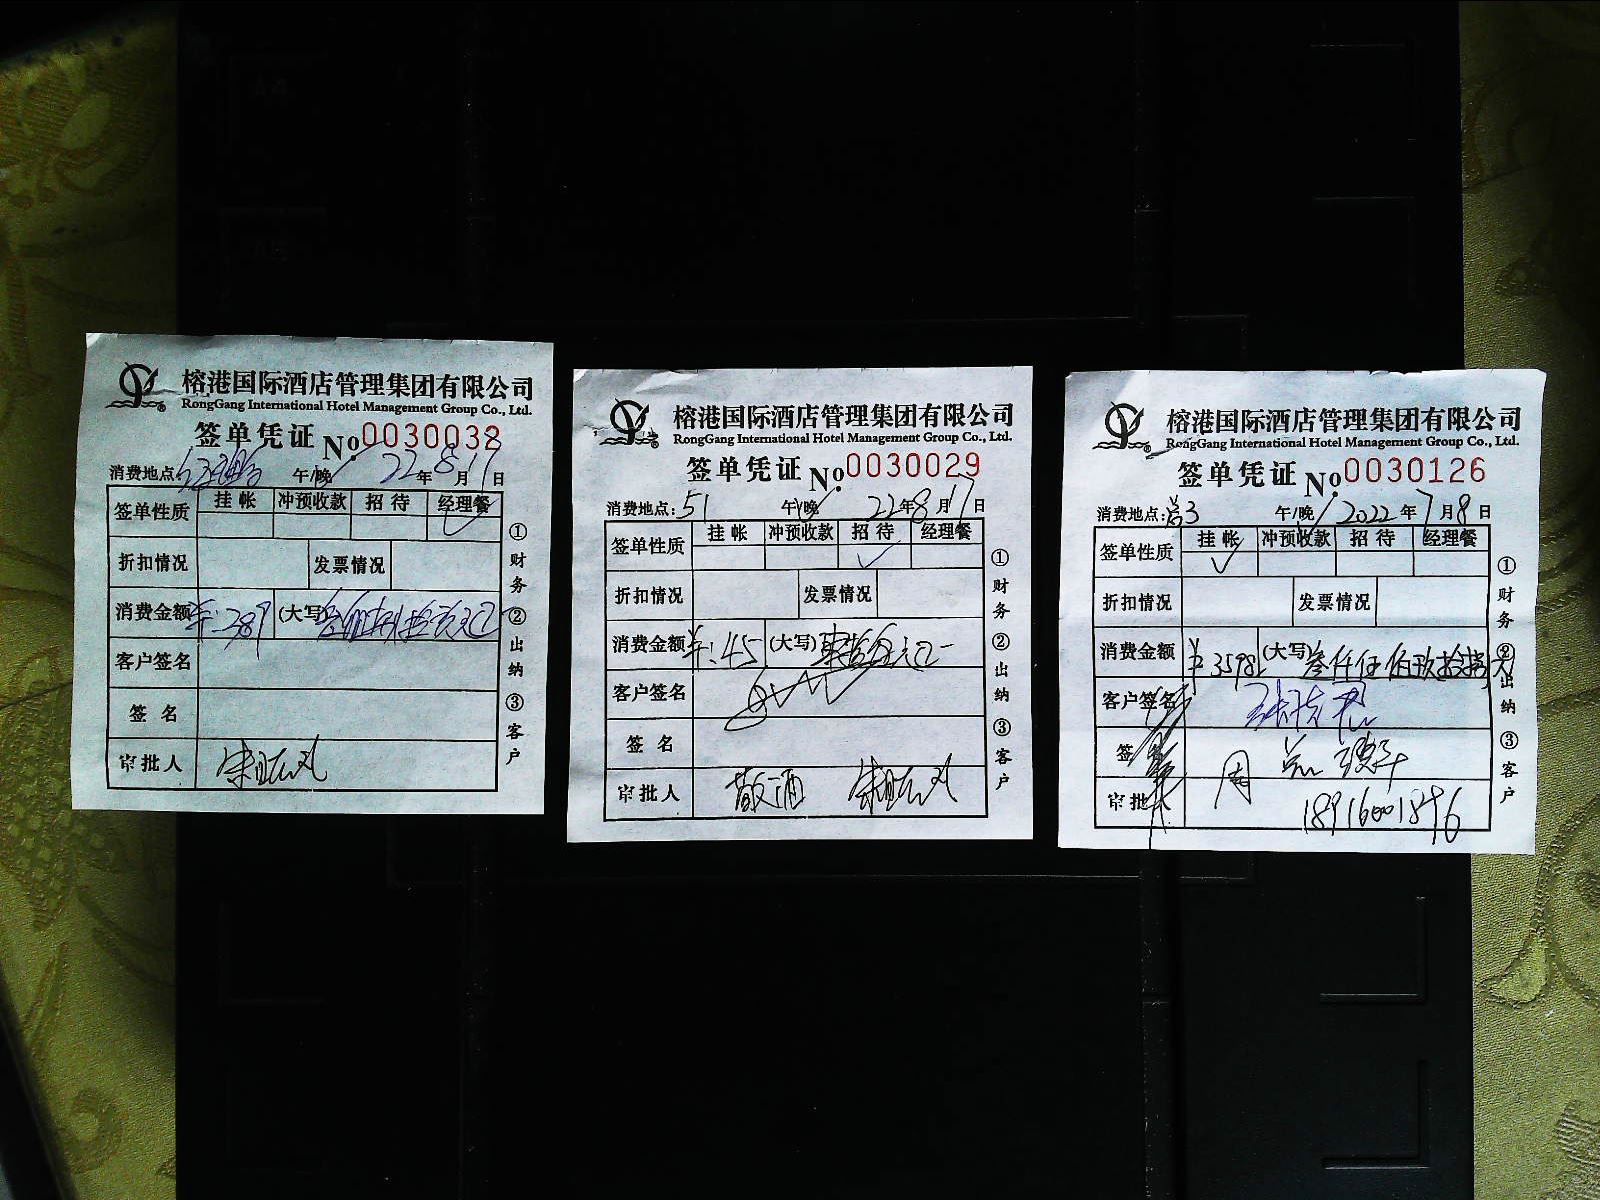 榕港国际酒店管理集团有限公司
RongGang International Hotel Management Group Co., Ltd.
签单凭证 No. 0030038
消费地点: 午/晚 22年8月17日
签单性质 挂帐 冲预收款 招待 经理餐
折扣情况 发票情况
消费金额 ¥:389 (大写)叁佰捌拾玖元正
客户签名
签名
审批人
①财务 ②出纳 ③客户
榕港国际酒店管理集团有限公司
RongGang International Hotel Management Group Co., Ltd.
签单凭证 No. 0030029
消费地点: 51 午/晚 22年8月17日
签单性质 挂帐 冲预收款 招待 经理餐
折扣情况 发票情况
消费金额 ¥:45 (大写)肆拾伍元正
客户签名
签名
审批人 敬酒
①财务 ②出纳 ③客户
榕港国际酒店管理集团有限公司
RongGang International Hotel Management Group Co., Ltd.
签单凭证 No. 0030126
消费地点: 3 午/晚 2022年7月8日
签单性质 挂帐 冲预收款 招待 经理餐
折扣情况 发票情况
消费金额 ¥3598 (大写)叁仟伍佰玖拾捌元
客户签名
签
审批人 周
18916001896
①财务 ②出纳 ③客户